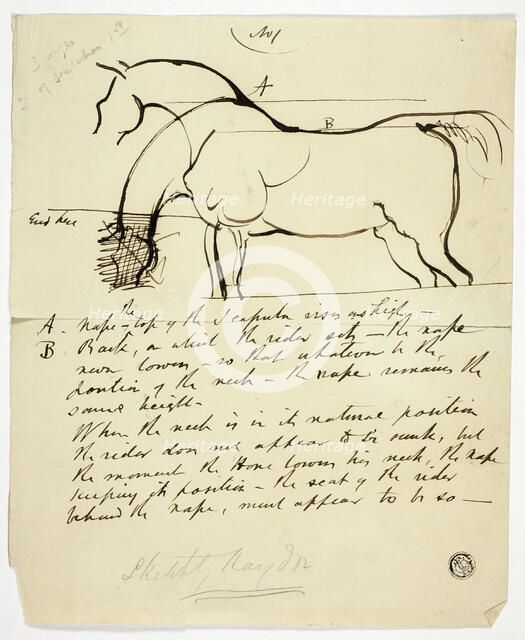 No 1
3 pages
of sketches 1st
A
B
End here
A - Nape - the top of the Scapula rises as high
B Back, on which the rider sits - the nape
never lowers - so that whatever be the
position of the neck - the nape remains the
same height -
When the neck is in its natural position
the rider does not appear to be sunk, but
the moment the Horse lowers his neck, the nape
keeping its position - the seat of the rider
behind the nape, must appear to be so -
Sketch by Haydon
Heritage
Heritage
Heritage
Heritage
Heritage
Heritage
Heritage